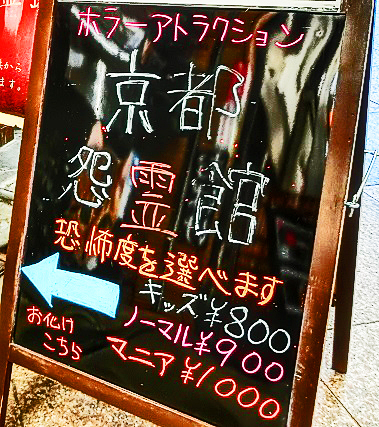 ホラーアトラクション
京都
怨霊館
恐怖度を選べます
キッズ¥800
ノーマル¥900
マニア¥1000
お化け
こちら